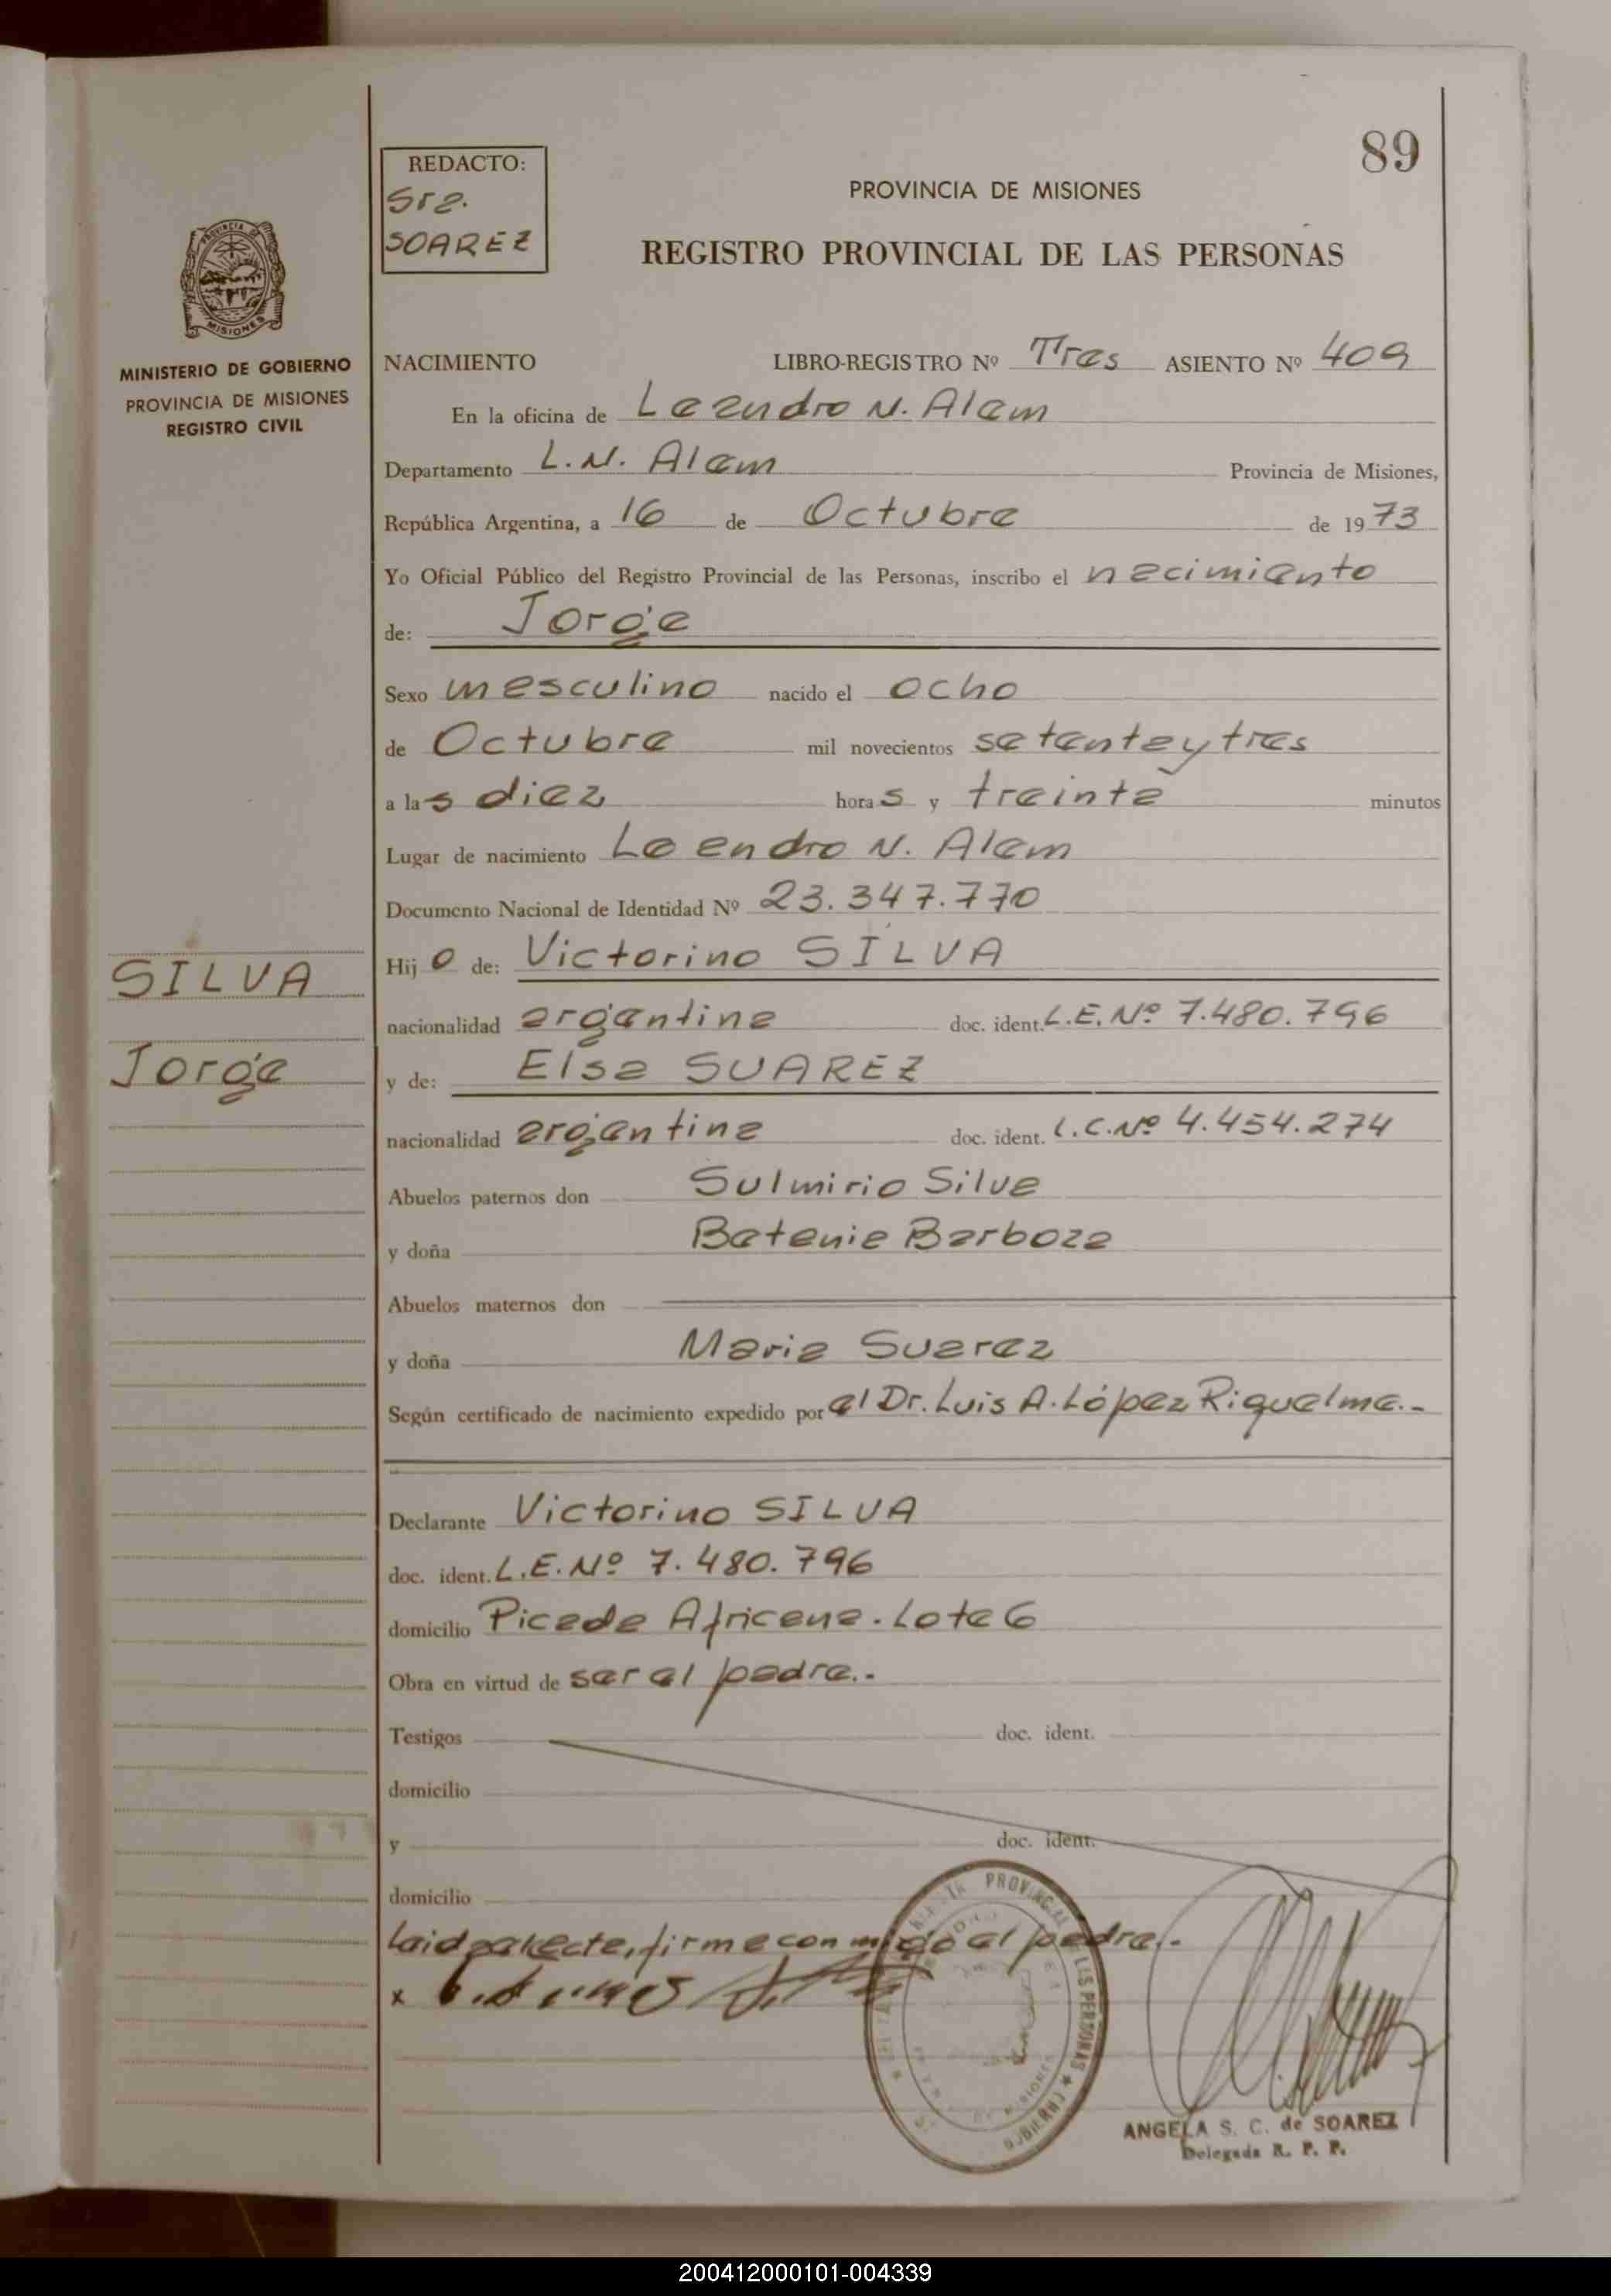 89
REDACTO:
Sra.
SOAREZ
PROVINCIA DE MISIONES
REGISTRO PROVINCIAL DE LAS PERSONAS
MISIONES
MINISTERIO DE GOBIERNO
PROVINCIA DE MISIONES
REGISTRO CIVIL
NACIMIENTO LIBRO-REGISTRO Nº Tres ASIENTO Nº 409
En la oficina de Leandro N. Alem
Departamento L. N. Alem Provincia de Misiones,
República Argentina, a 16 de Octubre de 1973
Yo Oficial Público del Registro Provincial de las Personas, inscribo el nacimiento
de: Jorge
Sexo masculino nacido el ocho
de Octubre mil novecientos setenta y tres
a las diez horas y treinta minutos
Lugar de nacimiento Leandro N. Alem
Documento Nacional de Identidad Nº 23.347.770
Hijo de: Victorino SILVA
nacionalidad argentina doc. ident. L.E. Nº 7.480.796
y de: Elsa SUAREZ
nacionalidad argentina doc. ident. L.C. Nº 4.454.274
Abuelos paternos don Sulmirio Silva
y doña Batania Barboza
Abuelos maternos don
y doña Maria Suarez
Según certificado de nacimiento expedido por el Dr. Luis A. López Riquelme.-
SILVA
Jorge
Declarante Victorino SILVA
doc. ident. L.E. Nº 7.480.796
domicilio Picada Africana. Lote 6
Obra en virtud de ser el padre.-
Testigos doc. ident.
domicilio
y doc. ident.
domicilio
Leida el acta, firma conmigo el padre.-
x
PROVINCIAL LAS PERSONAS
ANGELA S. C. de SOAREZ
Delegada R. P. P.
200412000101-004339